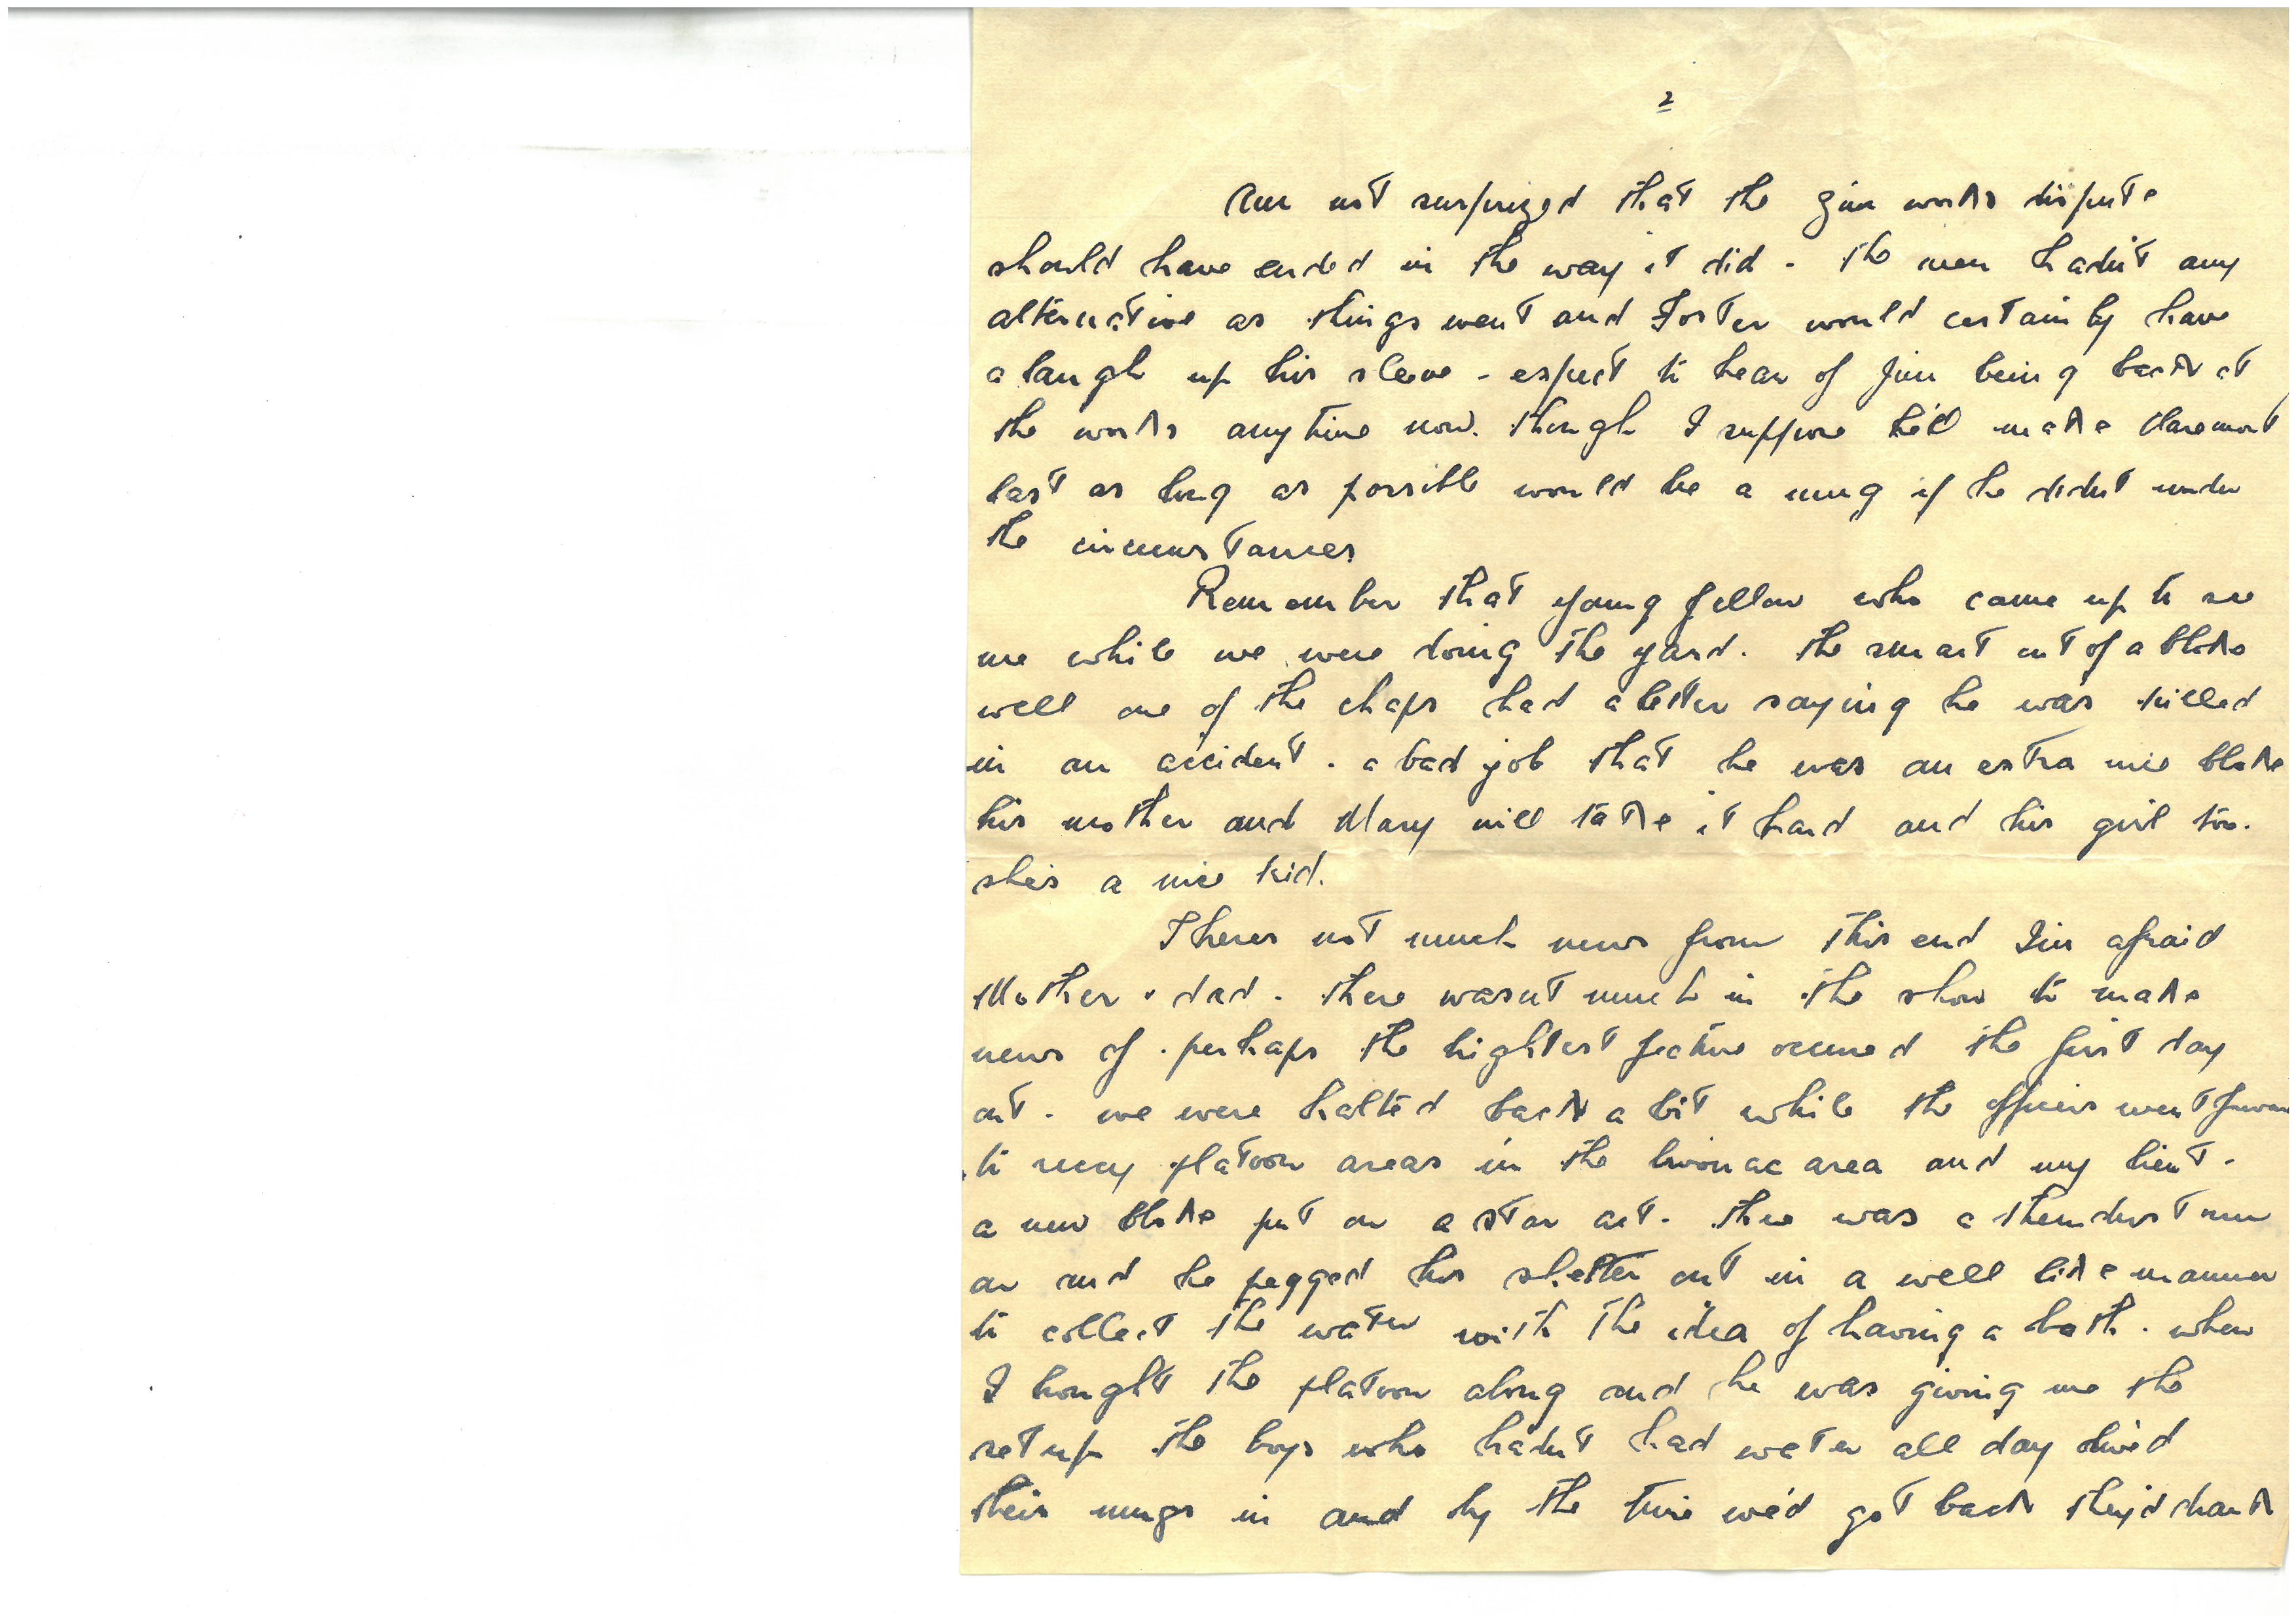 2
Am not surprized that the gun works dispute
should have ended in the way it did - the men hadn't any
alternative as things went and Foster would certainly have
a laugh up his sleeve - expect to hear of Jim being back at
the works anytime now. though I suppose he'd make Claremont
last as long as possible would be a mug if he didnt under
the circumstances
Remember that young fellow who came up to see
me while we were doing the yard. the smart cut of a bloke
well one of the chaps had a letter saying he was killed
in an accident. a bad job that he was an extra nice bloke
his mother and Mary will take it hard and his girl too.
she's a nice kid.
Theres not much news from this end I'm afraid
Mother & dad. there wasnt much in the show to make
news of. perhaps the brightest feature occured the first day
out. we were halted back a bit while the officers went forward
to recy platoon areas in the bivouac area and my lieut.
a new bloke put on a star act. there was a
on and he pegged his shelter out in a well like manner
to collect the water with the idea of having a bath. when
I brought the platoon along and he was giving me the
set up the boys who hadn't had water all day dived
their mugs in and by the time we'd got back they'd drank